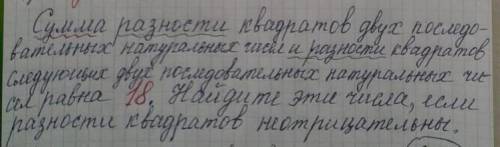 Сумма разности квадратов двух последо-
вательных натуральных чисел и разности квадратов
следующих двух последовательных натуральных чи-
сел равна 18. Найдите эти числа, если
разности квадратов неотрицательны.